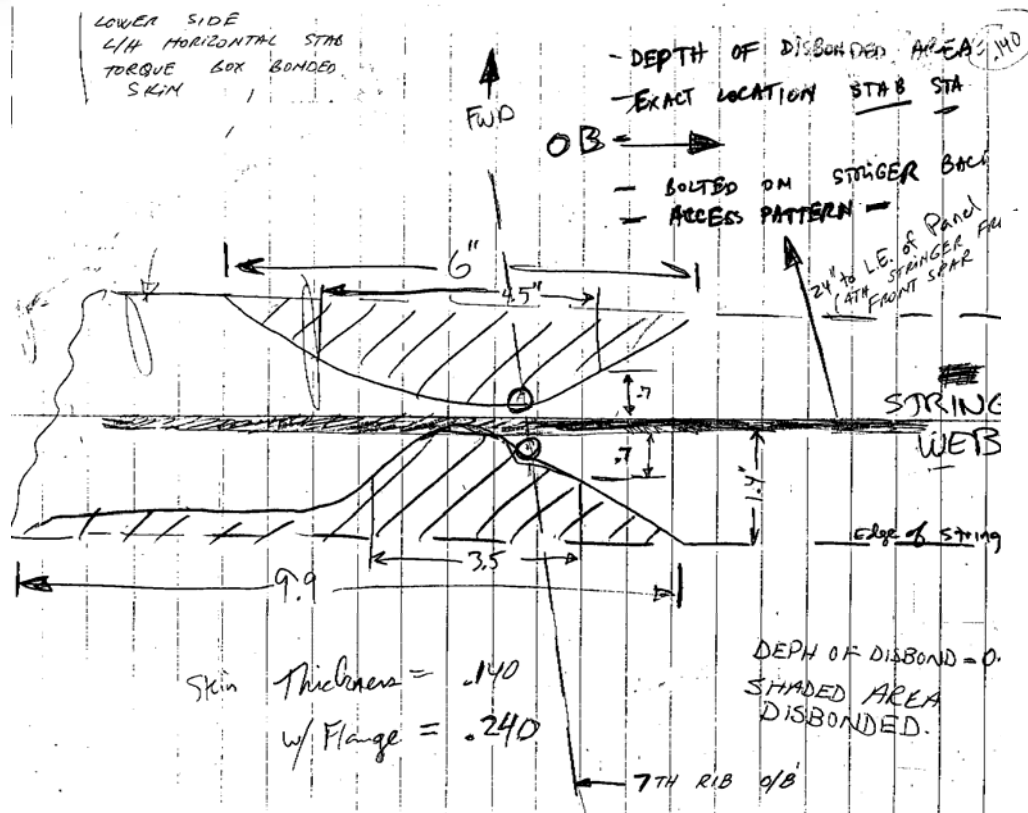 LOWER SIDE
L/H HORIZONTAL STAB
TORQUE BOX BONDED
SKIN
FWD
OB
- DEPTH OF DISBONDED AREA: .140
- EXACT LOCATION STAB STA
- BOLTED ON STRINGER BACK
- ACCESS PATTERN -
24" to L.E. of Panel
STRINGER
FRONT SPAR
6"
4.5"
.7
STRING
WEB
.7
1.4"
Edge of String
3.5
9.9
Skin Thickness = .140
w/ Flange = .240
DEPH OF DISBOND = 0.
SHADED AREA
DISBONDED.
7TH RIB O/B